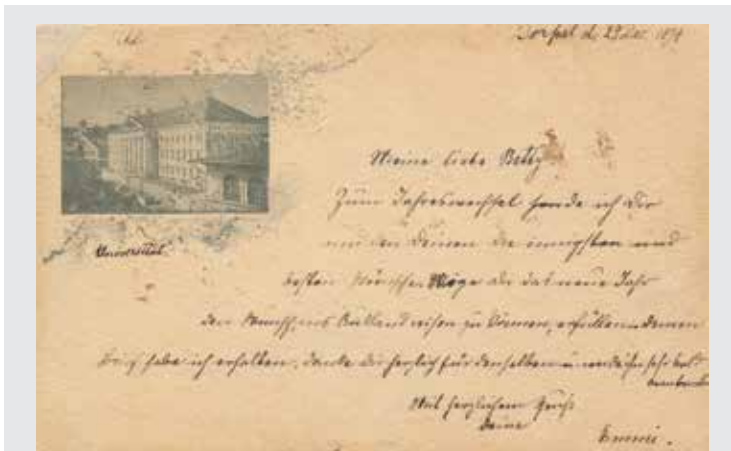 Dorpat d. 29 Dec. 1874
Meine liebe Betty
Zum Jahreswechsel sende ich Dir
und den Deinen die innigsten und
besten Wünsche. Möge dir das neue Jahr
den Wunsch, ins Ausland reisen zu können, erfüllen. Deinen
Brief habe ich erhalten, danke dir herzlich für denselben u. werde ihn sehr bald
beantworten
Universität.
Mit herzlichem Gruß
Deine
Emmi.